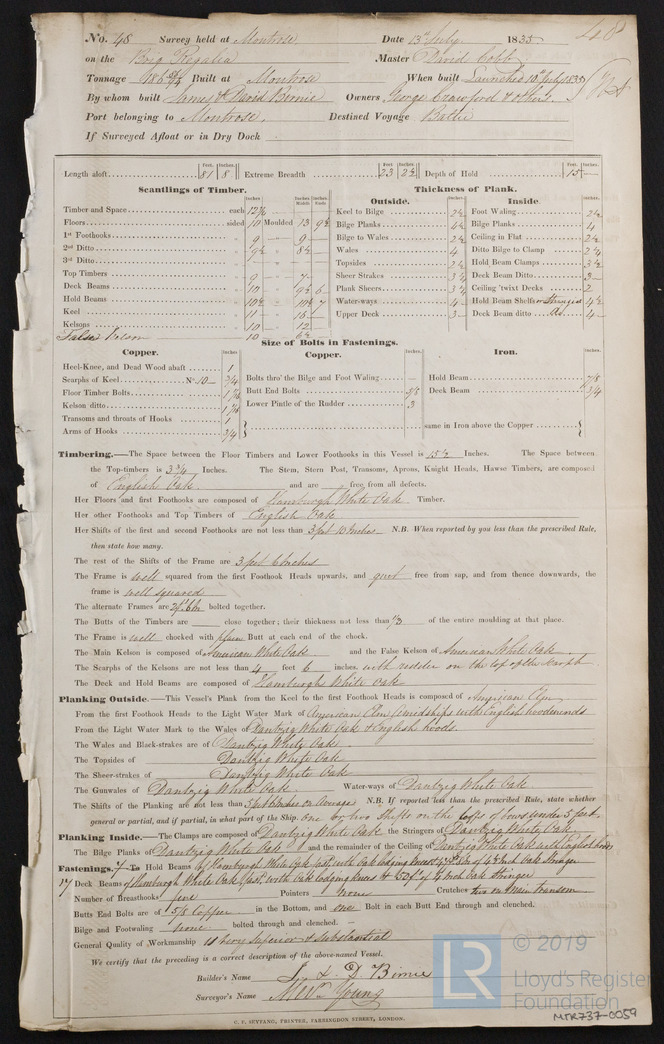 No. 48 Survey held at Montrose Date 13th July 1835
48
on the Brig Regalia Master David Cobb
Tonnage 186 Built at Montrose When built Launched 10th July 1835
By whom built James & David Birnie Owners George Crawford & others
Port belonging to Montrose Destined Voyage Baltic
If Surveyed Afloat or in Dry Dock
Feet. Inches. Feet. Inches. Feet. Inches.
Length aloft 81 8 Extreme Breadth 23 2½ Depth of Hold 15 —
Scantlings of Timber. Thickness of Plank.
Outside. Inside.
Timber and Space each
Floors sided 10 Moulded 13 9½
1st Foothooks 9 - 9 -
2nd Ditto 9½ 8½ -
3rd Ditto
Top Timbers 9 - 7 -
Deck Beams 10 9½ 6
Hold Beams 10½ 10½ 7
Keel 11 - 15 -
Kelsons 10 - 12
False Kelson 10 6½
Keel to Bilge 2½
Bilge Planks 4½
Bilge to Wales 2½
Wales 4
Topsides 2½
Sheer Strakes 3¼
Plank Sheers 3¼
Water-ways 4 -
Upper Deck 3 -
Foot Waling 2½
Bilge Planks 4
Ceiling in Flat 2½
Ditto Bilge to Clamp 2¼
Hold Beam Clamps 3½
Deck Beam Ditto 3 -
Ceiling 'twixt Decks 2
Hold Beam Shelfs or Stringers 4½
Deck Beam ditto Do. 4 -
Size of Bolts in Fastenings.
Copper. Copper. Iron.
Heel-Knee, and Dead Wood abaft 1
Scarphs of Keel No. 10 ¾
Floor Timber Bolts 1 1/16
Kelson ditto 1 1/16
Transoms and throats of Hooks 1
Arms of Hooks ¾
Bolts thro' the Bilge and Foot Waling —
Butt End Bolts 5/8
Lower Pintle of the Rudder 3
Hold Beam 7/8
Deck Beam ¾
same in Iron above the Copper
Timbering.—The Space between the Floor Timbers and Lower Foothooks in this Vessel is 15½ Inches. The Space between
the Top-timbers is 3¾ Inches. The Stem, Stern Post, Transoms, Aprons, Knight Heads, Hawse Timbers, are composed
of English Oak. and are free from all defects.
Her Floors and first Foothooks are composed of Hamburgh White Oak Timber.
Her other Foothooks and Top Timbers of English Oak
Her Shifts of the first and second Foothooks are not less than 3 feet 10 Inches N.B. When reported by you less than the prescribed Rule,
then state how many.
The rest of the Shifts of the Frame are 3 feet 6 Inches
The Frame is well squared from the first Foothook Heads upwards, and quit free from sap, and from thence downwards, the
frame is well squared
The alternate Frames are bolted together.
The Butts of the Timbers are close together; their thickness not less than 1/3 of the entire moulding at that place.
The Frame is well chocked with plain Butt at each end of the chock.
The Main Kelson is composed of American White Oak and the False Kelson of American White Oak
The Scarphs of the Kelsons are not less than 4 feet 6 inches. with on the top of the scarph
The Deck and Hold Beams are composed of Hamburgh White Oak
Planking Outside.—This Vessel's Plank from the Keel to the first Foothook Heads is composed of American Elm
From the first Foothook Heads to the Light Water Mark of American Elm Amidships with English hoodenends
From the Light Water Mark to the Wales of Dantzig White Oak & English hoods.
The Wales and Black-strakes are of Dantzig White Oak
The Topsides of Dantzig White Oak
The Sheer-strakes of Dantzig White Oak
The Gunwales of Dantzig White Oak Water-ways of Dantzig White Oak
The Shifts of the Planking are not less than 5 feet 6 Inches on average N.B. If reported less than the prescribed Rule, state whether
general or partial, and if partial, in what part of the Ship. one or two shifts on the tops of bows under 5 feet.
Planking Inside.—The Clamps are composed of Dantzig White Oak the Stringers of Dantzig White Oak
The Bilge Planks of Dantzig White Oak and the remainder of the Ceiling of Dantzig White Oak with English
Fastenings. 7 To Hold Beams of Hamburgh White Oak fast. with Oak lodging knees & of 4½ Inch Oak Stringer
17 Deck Beams of Hamburgh White Oak fast. with Oak lodging knees & of 4 Inch Oak Stringer
Number of Breasthooks five Pointers none Crutches two on main transom
Butts End Bolts are of 5/8 Copper in the Bottom, and one Bolt in each Butt End through and clenched.
Bilge and Footwaling none bolted through and clenched.
General Quality of Workmanship is very superior & substantial
We certify that the preceding is a correct description of the above-named Vessel.
Builder's Name J. & D. Birnie
Surveyor's Name Young
C. F. SEYFANG, PRINTER, FARRINGDON STREET, LONDON.
LR © 2019
Lloyd's Register
Foundation
MTR737-0059